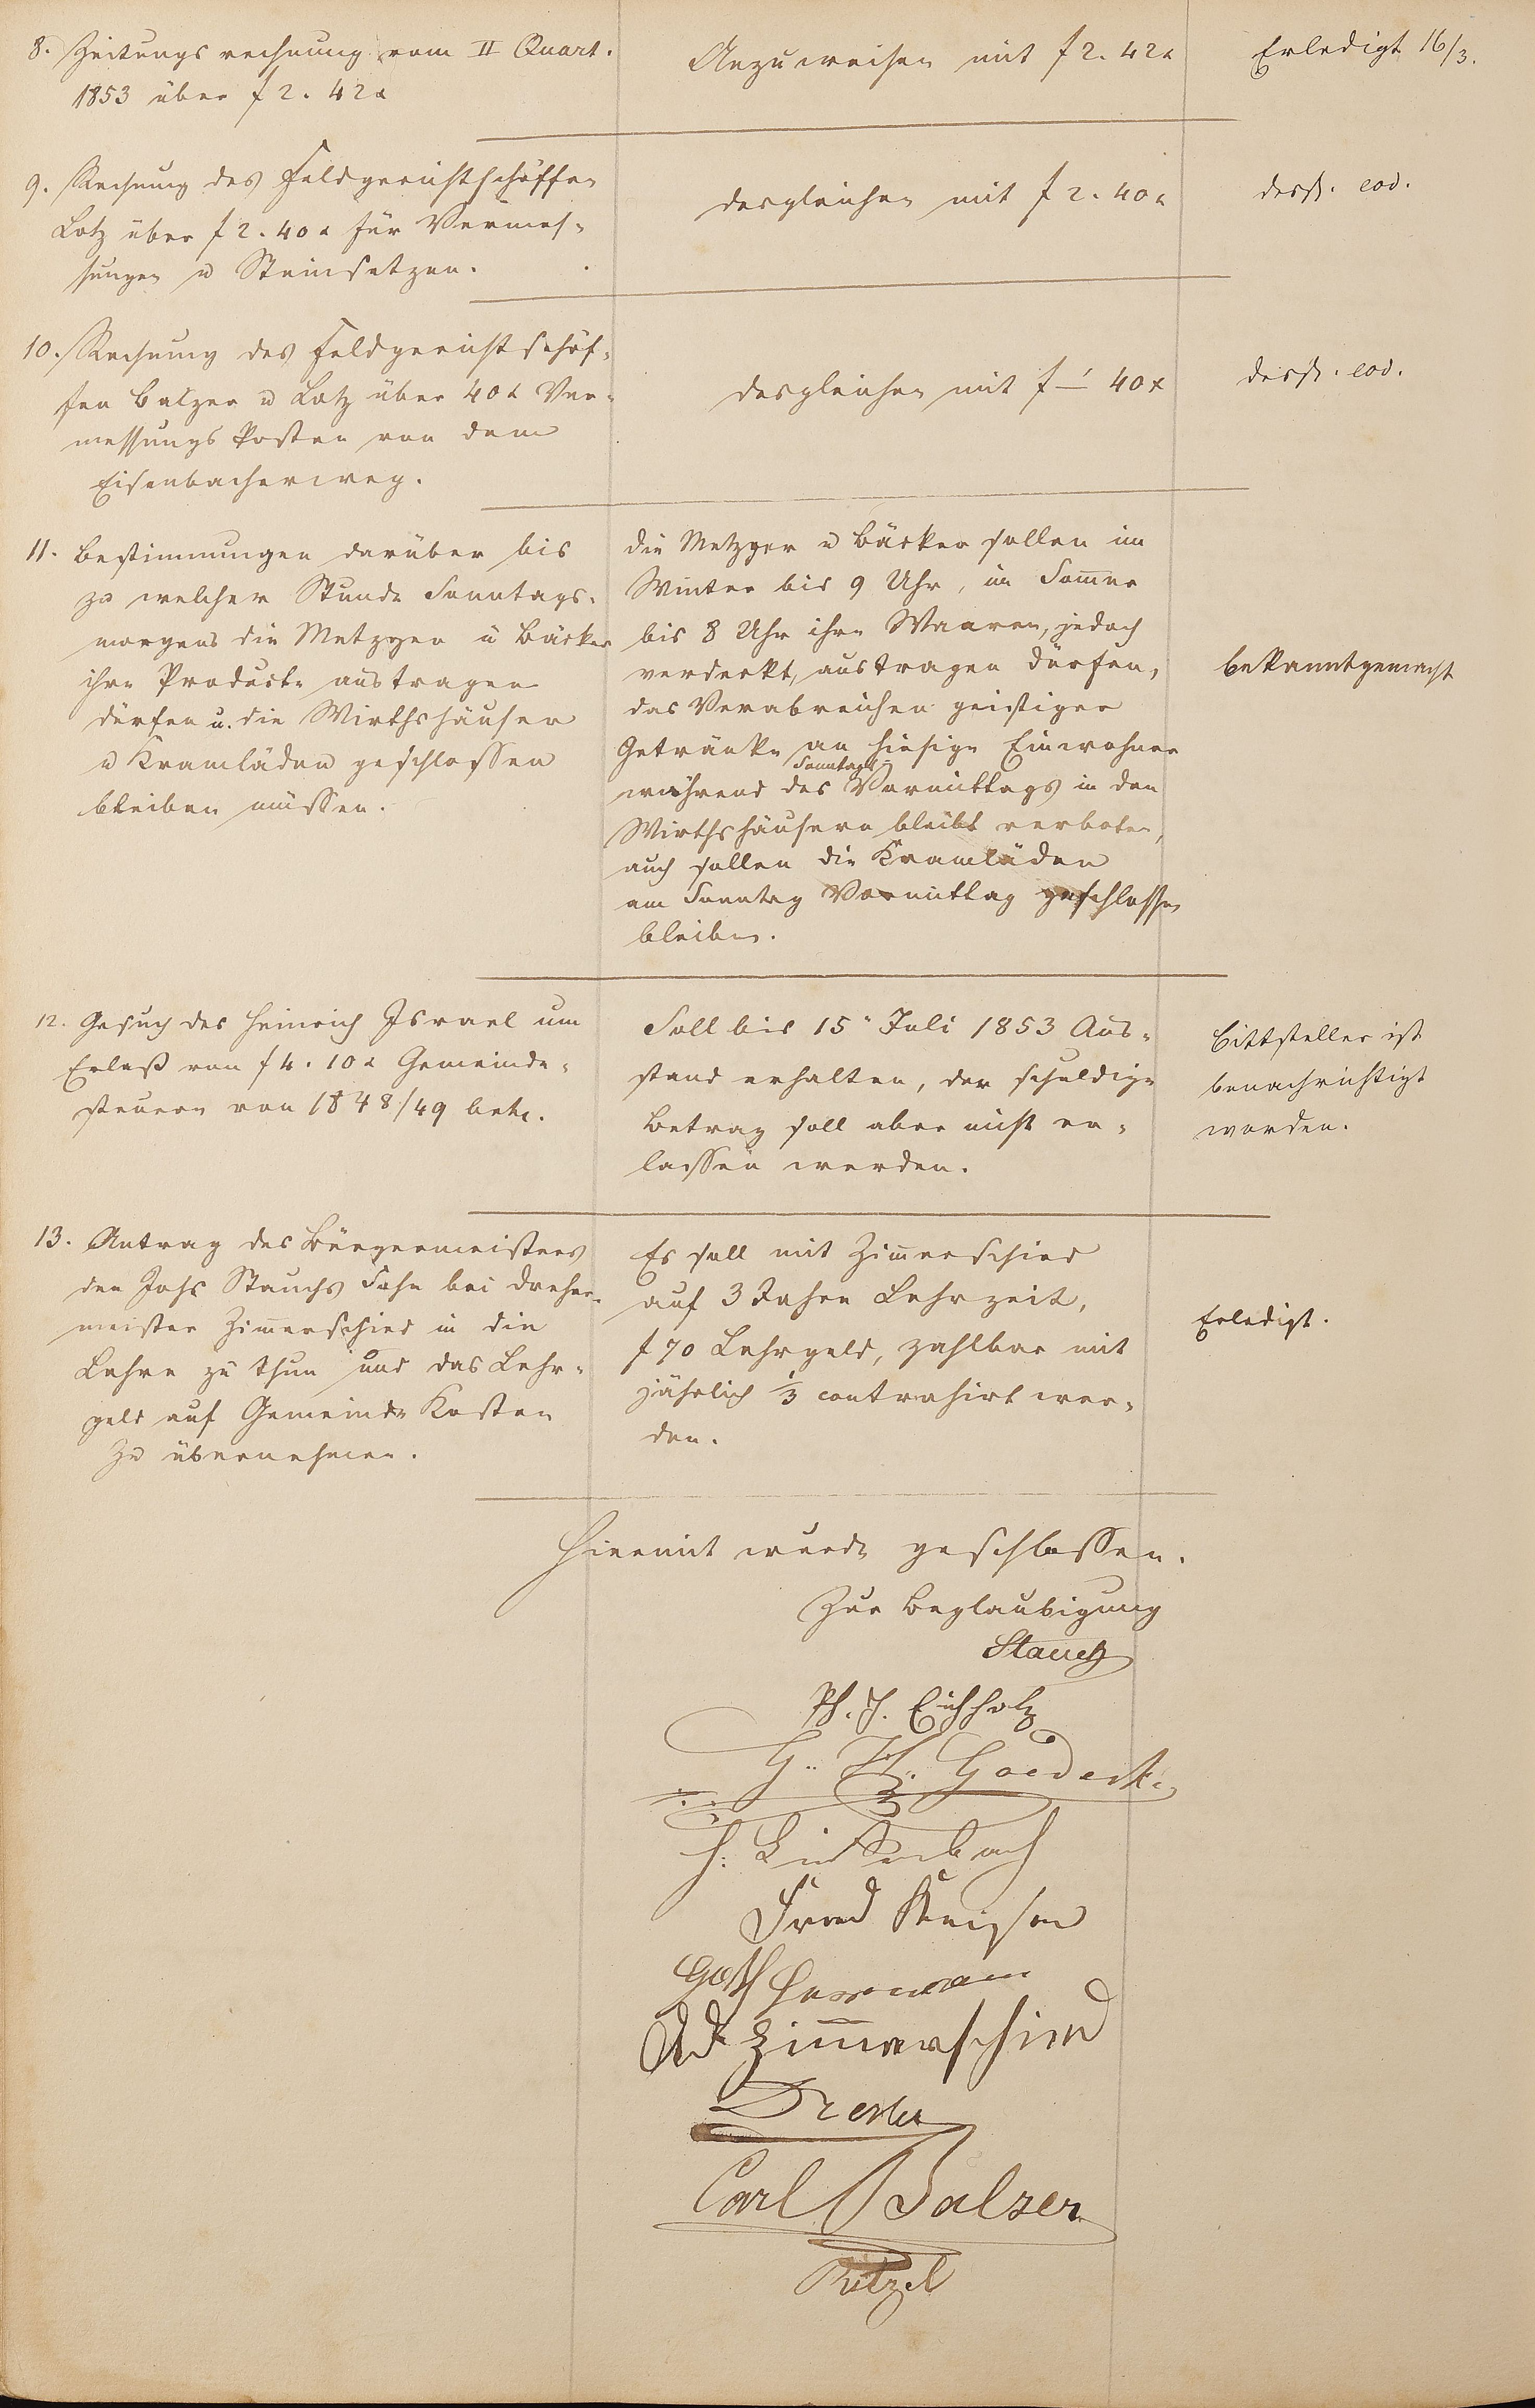 8. Zeitungsrechnung vom II Quart.
1853 über f 2. 42 x
Anzuweisen mit f 2. 42 x
Erledigt 16/3.
9. Rechnung des Feldgerichtschöffen
Lotz über f 2. 40 x für Vermes-
sungen u Steinsetzen.
desgleichen mit f 2. 40 x
dessgl. eod.
10. Rechnung des Feldgerichtschöf-
fen Balzer u Lotz über 40 x Ver-
messungs Kosten von dem
Eisenbacherweg.
desgleichen mit f — 40 x
dessgl. eod.
11. Bestimmungen darüber bis
zu welcher Stunde Sonntags-
morgens die Metzger u Bäcker
ihre Producte austragen
dürfen u. die Wirthshäuser
u Kramläden geschlossen
bleiben müssen.
die Metzger u Bäcker sollen im
Winter bis 9 Uhr, im Som̄er
bis 8 Uhr ihre Waaren, jedoch
verdeckt, austragen dürfen,
das Verabreichen geistiger
Getränke an hiesige Einwohner
während des Sonntags Vormittags in den
Wirthshäusern bleibt verboten,
auch sollen die Kramläden
am Sonntag Vormittag geschlossen
bleiben.
bekanntgemacht
12. Gesuch des Heinrich Israel um
Erlaß von f 4. 10 x Gemeinde-
steuern von 1848/49 betr.
Soll bis 15n Juli 1853 Aus-
stand erhalten, der schuldige
Betrag soll aber nicht er-
lassen werden.
Bittsteller ist
benachrichtigt
worden.
13. Antrag des Bürgermeisters
den Johs Stauchs Sohn bei Dreher-
meister Zim̄erschied in die
Lehre zu thun und das Lehr-
geld auf Gemeinde Kosten
zu übernehmen.
Es soll mit Zim̄erschied
auf 3 Jahre Lehrzeit,
f 70 Lehrgeld, zahlbar mit
jährlich 1/3 contrahirt wer-
den.
Erledigt.
Hiermit wurde geschlossen.
Zur Beglaubigung
Stauch
Ph. J. Eichholz
G. Th. Goedecke
H. Lindenbach
Gotth Herrmann
Ad Zim̄erschied
Carl Balzer